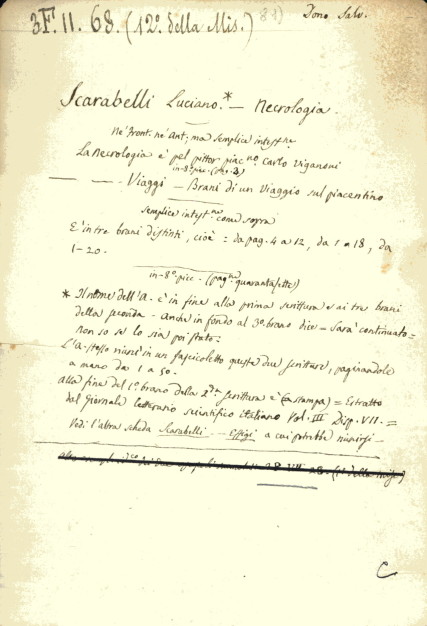 3F. II. 68. (12º. della Mis.)
Dono Salv.
Scarabelli Luciano.* — Necrologia.
Nè Front. nè Ant; ma semplice intest.ne
La Necrologia è pel pittor piac.no Carlo Viganoni
in-8º. picc.
— Viaggi — Brani di un Viaggio sul piacentino
Semplice intest.ne come sopra
E' in tre brani distinti, cioè = da pag. 4 a 12, da 1 a 18, da
1-20.
in-8º. picc. (pag.ne quarantasette)
* Il nome dell'A. è in fine alla prima scrittura e ai tre brani
della seconda — Anche in fondo al 3º. brano dice = Sarà continuato =
non so se lo sia poi stato.
L'A. stesso riunì in un fascicoletto queste due scritture, paginandole
a mano da 1 a 50.
Alla fine del 1º. brano della 2da. scrittura è (a stampa) = Estratto
dal Giornale letterario scientifico italiano Vol. III Disp. VII. =
Vedi l'altra scheda Scarabelli — Effigi a cui potrebbe riunirsi —
C